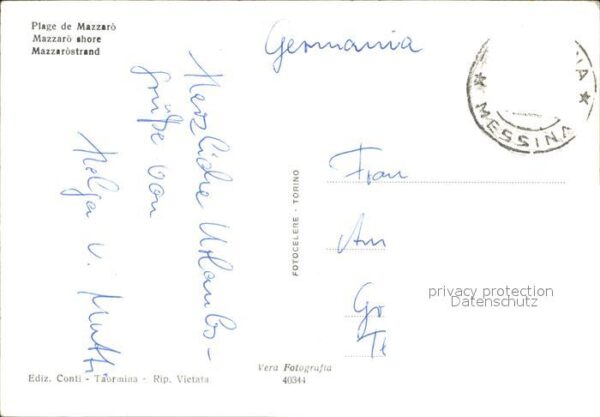 Plage de Mazzarò
Mazzarò shore
Mazzaròstrand
Germania
MESSINA
Herzliche Urlaubs-
grüße von
Helga u. Mutti
FOTOCELERE - TORINO
Frau
Am
Gr
Te
privacy protection
Datenschutz
Vera Fotografia
40344
Ediz. Conti - Taormina - Rip. Vietata